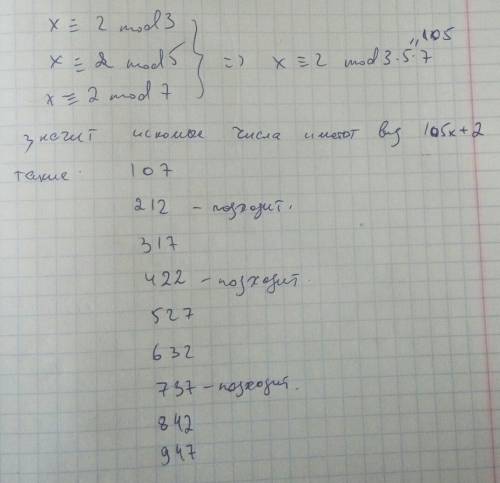 x ≡ 2 mod 3
x ≡ 2 mod 5 } => x ≡ 2 mod 3·5·7 = 105
x ≡ 2 mod 7
значит искомые числа имеют вид 105x+2
такие:
107
212 - подходит.
317
422 - подходит.
527
632
737 - подходит.
842
947